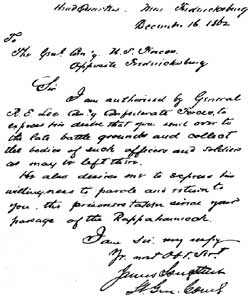 Head Quarters Near Fredericksburg
December 16, 1862
To
The Genl. Com'g U.S. Forces
Opposite Fredericksburg
Sir
I am authorised by General
R. E. Lee Com'g Confederate Forces, to
express his desire that you send over to
the late battle grounds and collect
the bodies of such officers and soldiers
as may be left there.
He also desires me to express his
willingness to parole and return to
you, the prisoners taken since your
passage of the Rappahannock.
I am Sir, very resply
Yr. most Obt. Svt.
James Longstreet
Lt Gen. Comd